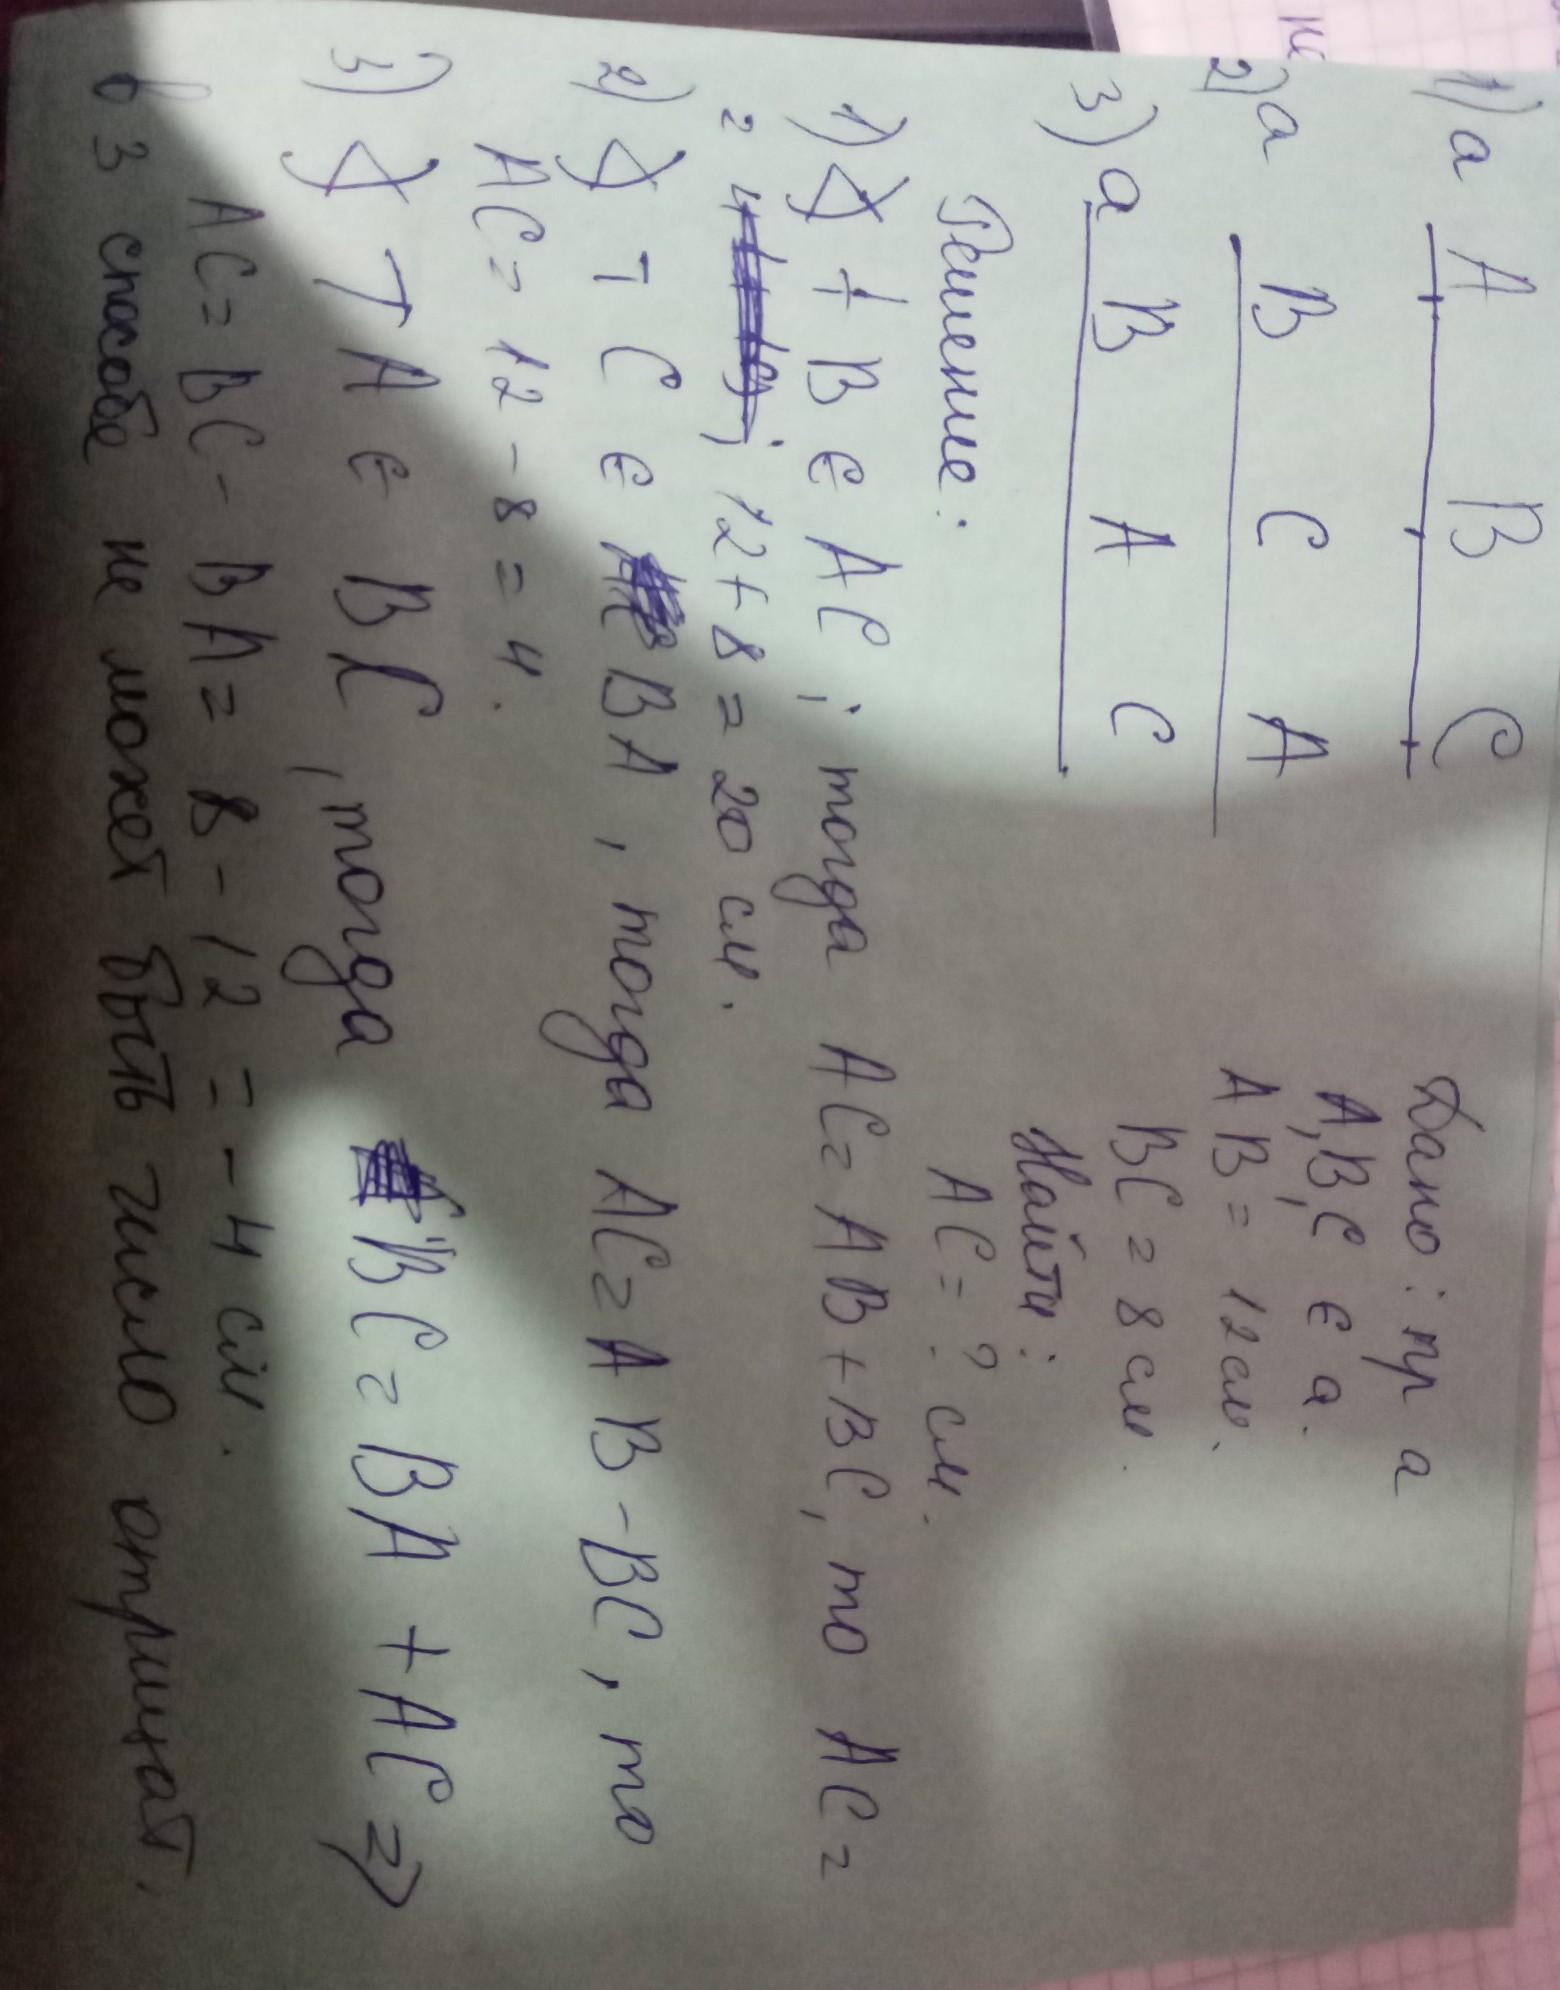 1) a A B C
2) a B C A
3) a B A C
Дано: пр a
A, B, C ∈ a.
AB = 12 см.
BC = 8 см.
Найти:
AC = ? см.
Решение:
1) т B ∈ AC, тогда AC = AB + BC, то AC =
= 12 + 8 = 20 см.
2) т C ∈ BA, тогда AC = AB - BC, то
AC = 12 - 8 = 4.
3) т A ∈ BC, тогда BC = BA + AC ⇒
AC = BC - BA = 8 - 12 = -4 см.
в 3 способе не может быть число отрицат.